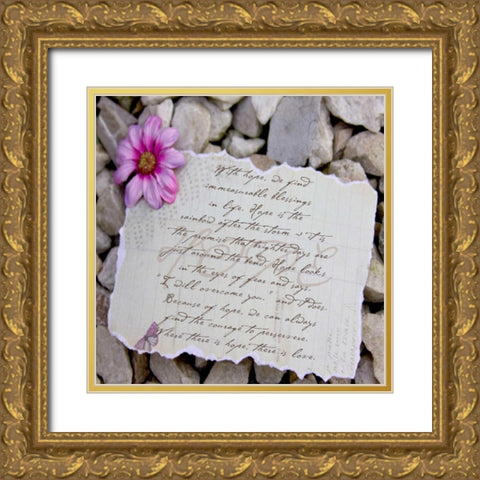 With hope, we find
immeasurable blessings
in life. Hope is the
rainbow after the storm. It is
the promise that brighter days are
just around the bend. Hope looks
in the eyes of fear and says,
"I will overcome you," and does.
Because of hope, we can always
find the courage to persevere.
Where there is hope, there is love.